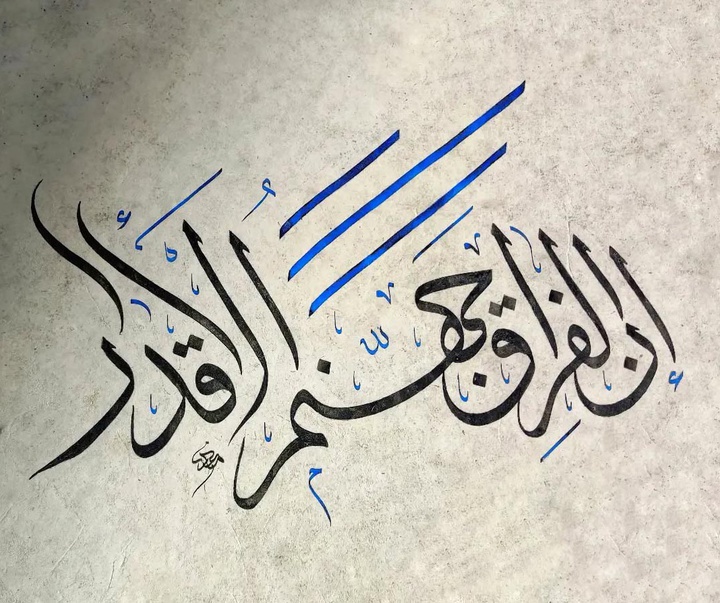 إنَّ الفِراقَ جَهَنَّمُ الأقدارِ